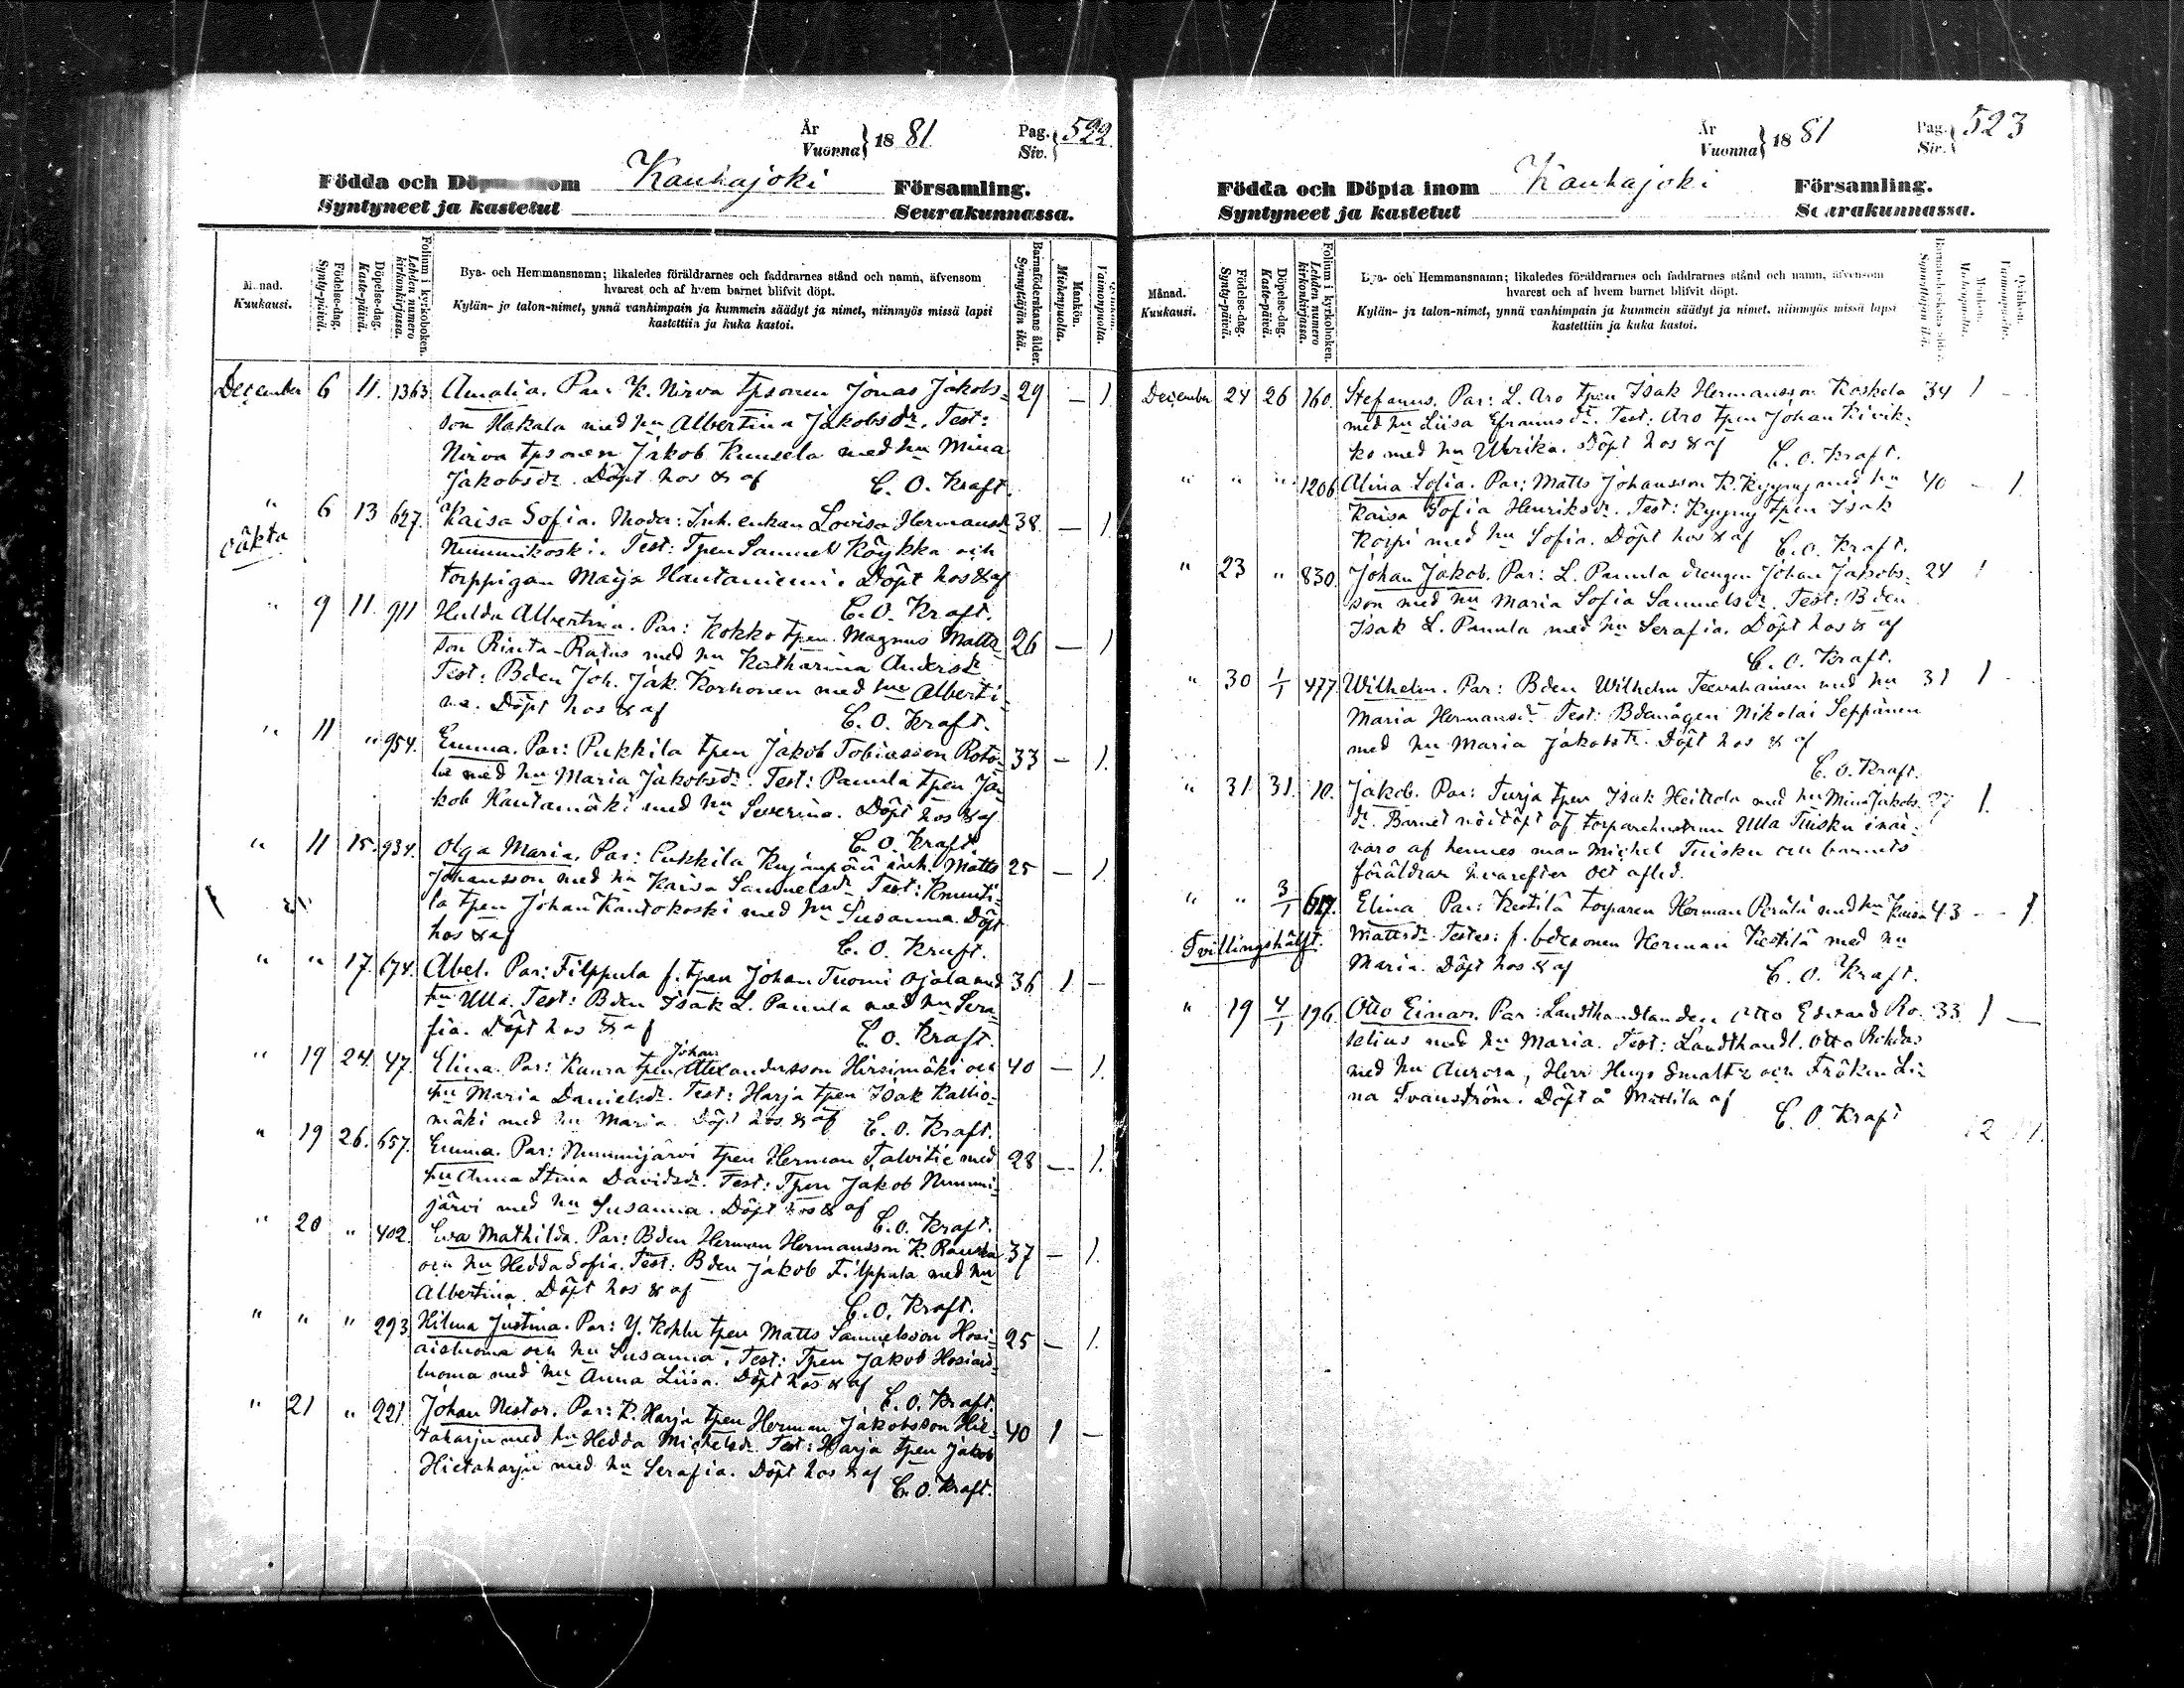 År
Vuonna} 18 81. Pag. Siv. {522.
Födda och Döp inom Kauhajoki Församling.
Syntyneet ja kastetut Seurakunnassa.
Månad. Kuukausi.
Födelse-dag. Synty-päivä.
Döpelse-dag. Kaste-päivä.
Folium i kyrkoboken. Lehden numero kirkonkirjassa.
Bya- och Hemmansnamn; likaledes föräldrarnes och faddrarnes stånd och namn, äfvensom
hvarest och af hvem barnet blifvit döpt.
Kylän- ja talon-nimet, ynnä vanhimpain ja kummein säädyt ja nimet, niinmyös missä lapsi
kastettiin ja kuka kastoi.
Barnaföderskans ålder. Synnyttäjän ikä.
Mankön. Miehenpuolia.
Vaimonpuolia.
December 6 11. 1363 Amalia. Par: K. Nirva tpsonen Jonas Jakobs- 29 — 1.
son Hakala med hu Albertina Jakobsdr. Test:
Nirva tpsonen Jakob Kuusela med hu Mina
Jakobsdr. Döpt hos & af C. O. Kraft.
" 6 13 627. Kaisa Sofia. Moder: Inh. enkan Lovisa Hermansdr 38. — 1.
oäkta Nummikoski. Test: Tpen Samuel Köykkä och
torppigan Maija Hautaniemi. Döpt hos & af
C. O. Kraft.
" 9 11. 911 Hulda Albertina. Par: Kokko tpen Magnus Matts-
son Rinta-Ratus med hu Katharina Andersdr 26 — 1
Test: Bden Joh. Jak. Korhonen med hu Alberti-
na. Döpt hos & af C. O. Kraft.
" 11 " 954. Emma. Par: Pukkila tpen Jakob Tobiasson Roto- 33 — 1.
la med hu Maria Jakobsdr. Test: Panula tpen Ja-
kob Rautamäki med hu Severina. Döpt hos & af
C. O. Kraft.
" 11 15. 934. Olga Maria. Par: Pukkila Kujanpää inh. Matts 25 — 1.
Johansson med hu Kaisa Samuelsdr. Test: Knuuti-
la tpen Johan Kantokoski med hu Susanna. Döpt
hos & af C. O. Kraft.
" " 17. 674. Abel. Par: Filppula f. tpen Johan Tuomi Ojala med 36 1 —
hu Ulla. Test: Bden Isak L. Panula med hu Sera-
fia. Döpt hos & af C. O. Kraft.
Johan
" 19 24. 47. Elina. Par: Kaura tpen Alexandersson Hirsimäki och 40 — 1.
hu Maria Danielsdr. Test: Harja tpen Isak Kallio-
mäki med hu Maria. Döpt hos & af C. O. Kraft.
" 19 26. 657. Emma. Par: Nummijärvi tpen Herman Talvitie med 28 — 1.
hu Anna Stina Davidsdr. Test: Tpen Jakob Nummi-
järvi med hu Susanna. Döpt hos & af
C. O. Kraft.
" 20 " 402. Eva Mathilda. Par: Bden Herman Hermansson K. Rauska 37 — 1.
och hu Hedda Sofia. Test: Bden Jakob Filppula med hu
Albertina. Döpt hos & af C. O. Kraft.
" " " 293 Hilma Justina. Par: Y. Kohlu tpen Matts Samuelsson Hosi- 25 — 1.
aisluoma och hu Susanna. Test: Tpen Jakob Hosiais-
luoma med hu Anna Liisa. Döpt hos & af
C. O. Kraft.
" 21 " 221. Johan Nestor. Par: K. Harja tpen Herman Jakobsson Hie- 40 1 —
taharju med hu Hedda Michelsdr. Test: Harja tpen Jakob
Hietaharju med hu Serafia. Döpt hos & af
C. O. Kraft.
År
Vuonna} 18 81 Pag. Siv. {523
Födda och Döpta inom Kauhajoki Församling.
Syntyneet ja kastetut Seurakunnassa.
Månad. Kuukausi.
Födelse-dag. Synty-päivä.
Döpelse-dag. Kaste-päivä.
Folium i kyrkoboken. Lehden numero kirkonkirjassa.
Bya- och Hemmansnamn; likaledes föräldrarnes och faddrarnes stånd och namn, äfvensom
hvarest och af hvem barnet blifvit döpt.
Kylän- ja talon-nimet, ynnä vanhimpain ja kummein säädyt ja nimet, niinmyös missä lapsi
kastettiin ja kuka kastoi.
Barnaföderskans ålder. Synnyttäjän ikä.
Mankön. Miehenpuolia.
Qvinkön. Vaimonpuolia.
December 24 26 160. Stefanus. Par: L. Aro tpen Isak Hermansson Koskela 34 1 —
med hu Liisa Efraimsdr. Test: Aro tpen Johan Kivik-
ko med hu Ulrika. Döpt hos & af C. O. Kraft.
" " " 1206 Alina Sofia. Par: Matts Johansson K. Kyyny med hu 40 — 1.
Kaisa Sofia Henriksdr. Test: Kyyny tpen Isak
Korpi med hu Sofia. Döpt hos & af C. O. Kraft.
" 23 " 830. Johan Jakob. Par: L. Panula drengen Johan Jakobs- 24 1
son med hu Maria Sofia Samuelsdr. Test: Bden
Isak L. Panula med hu Serafia. Döpt hos & af
C. O. Kraft.
" 30 1/1 477. Wilhelm. Par: Bden Wilhelm Teevahainen med hu 31 1 -
Maria Hermansdr. Test: Bdemågen Nikolai Seppänen
med hu Maria Jakobsdr. Döpt hos & af
C. O. Kraft.
" 31 31. 10. Jakob. Par: Turja tpen Isak Heittola med hu Mina Jakobs- 27 1.
dr. Barnet nöddöpt af torparehustrun Ulla Tuisku i när-
varo af hennes man Michel Tuisku och barnets
föräldrar hvarefter det afled.
" " 3/1 617. Elina Par: Kestilä torparen Herman Perälä med hu Kaisa 43 - - 1
Tvillingshälft. Mattsdr. Testes: f. bdesonen Herman Kestilä med hu
Maria. Döpt hos & af C. O. Kraft.
" 19 4/1 196. Otto Einar. Par: Landthandlanden Otto Edvard Ro- 33. 1 —
selius med hu Maria. Test: Landthandl. Otto Rokdas
med hu Aurora, Herr Hugo Smaltz och Fröken Li-
na Svanström. Döpt å Mattila af
C. O. Kraft